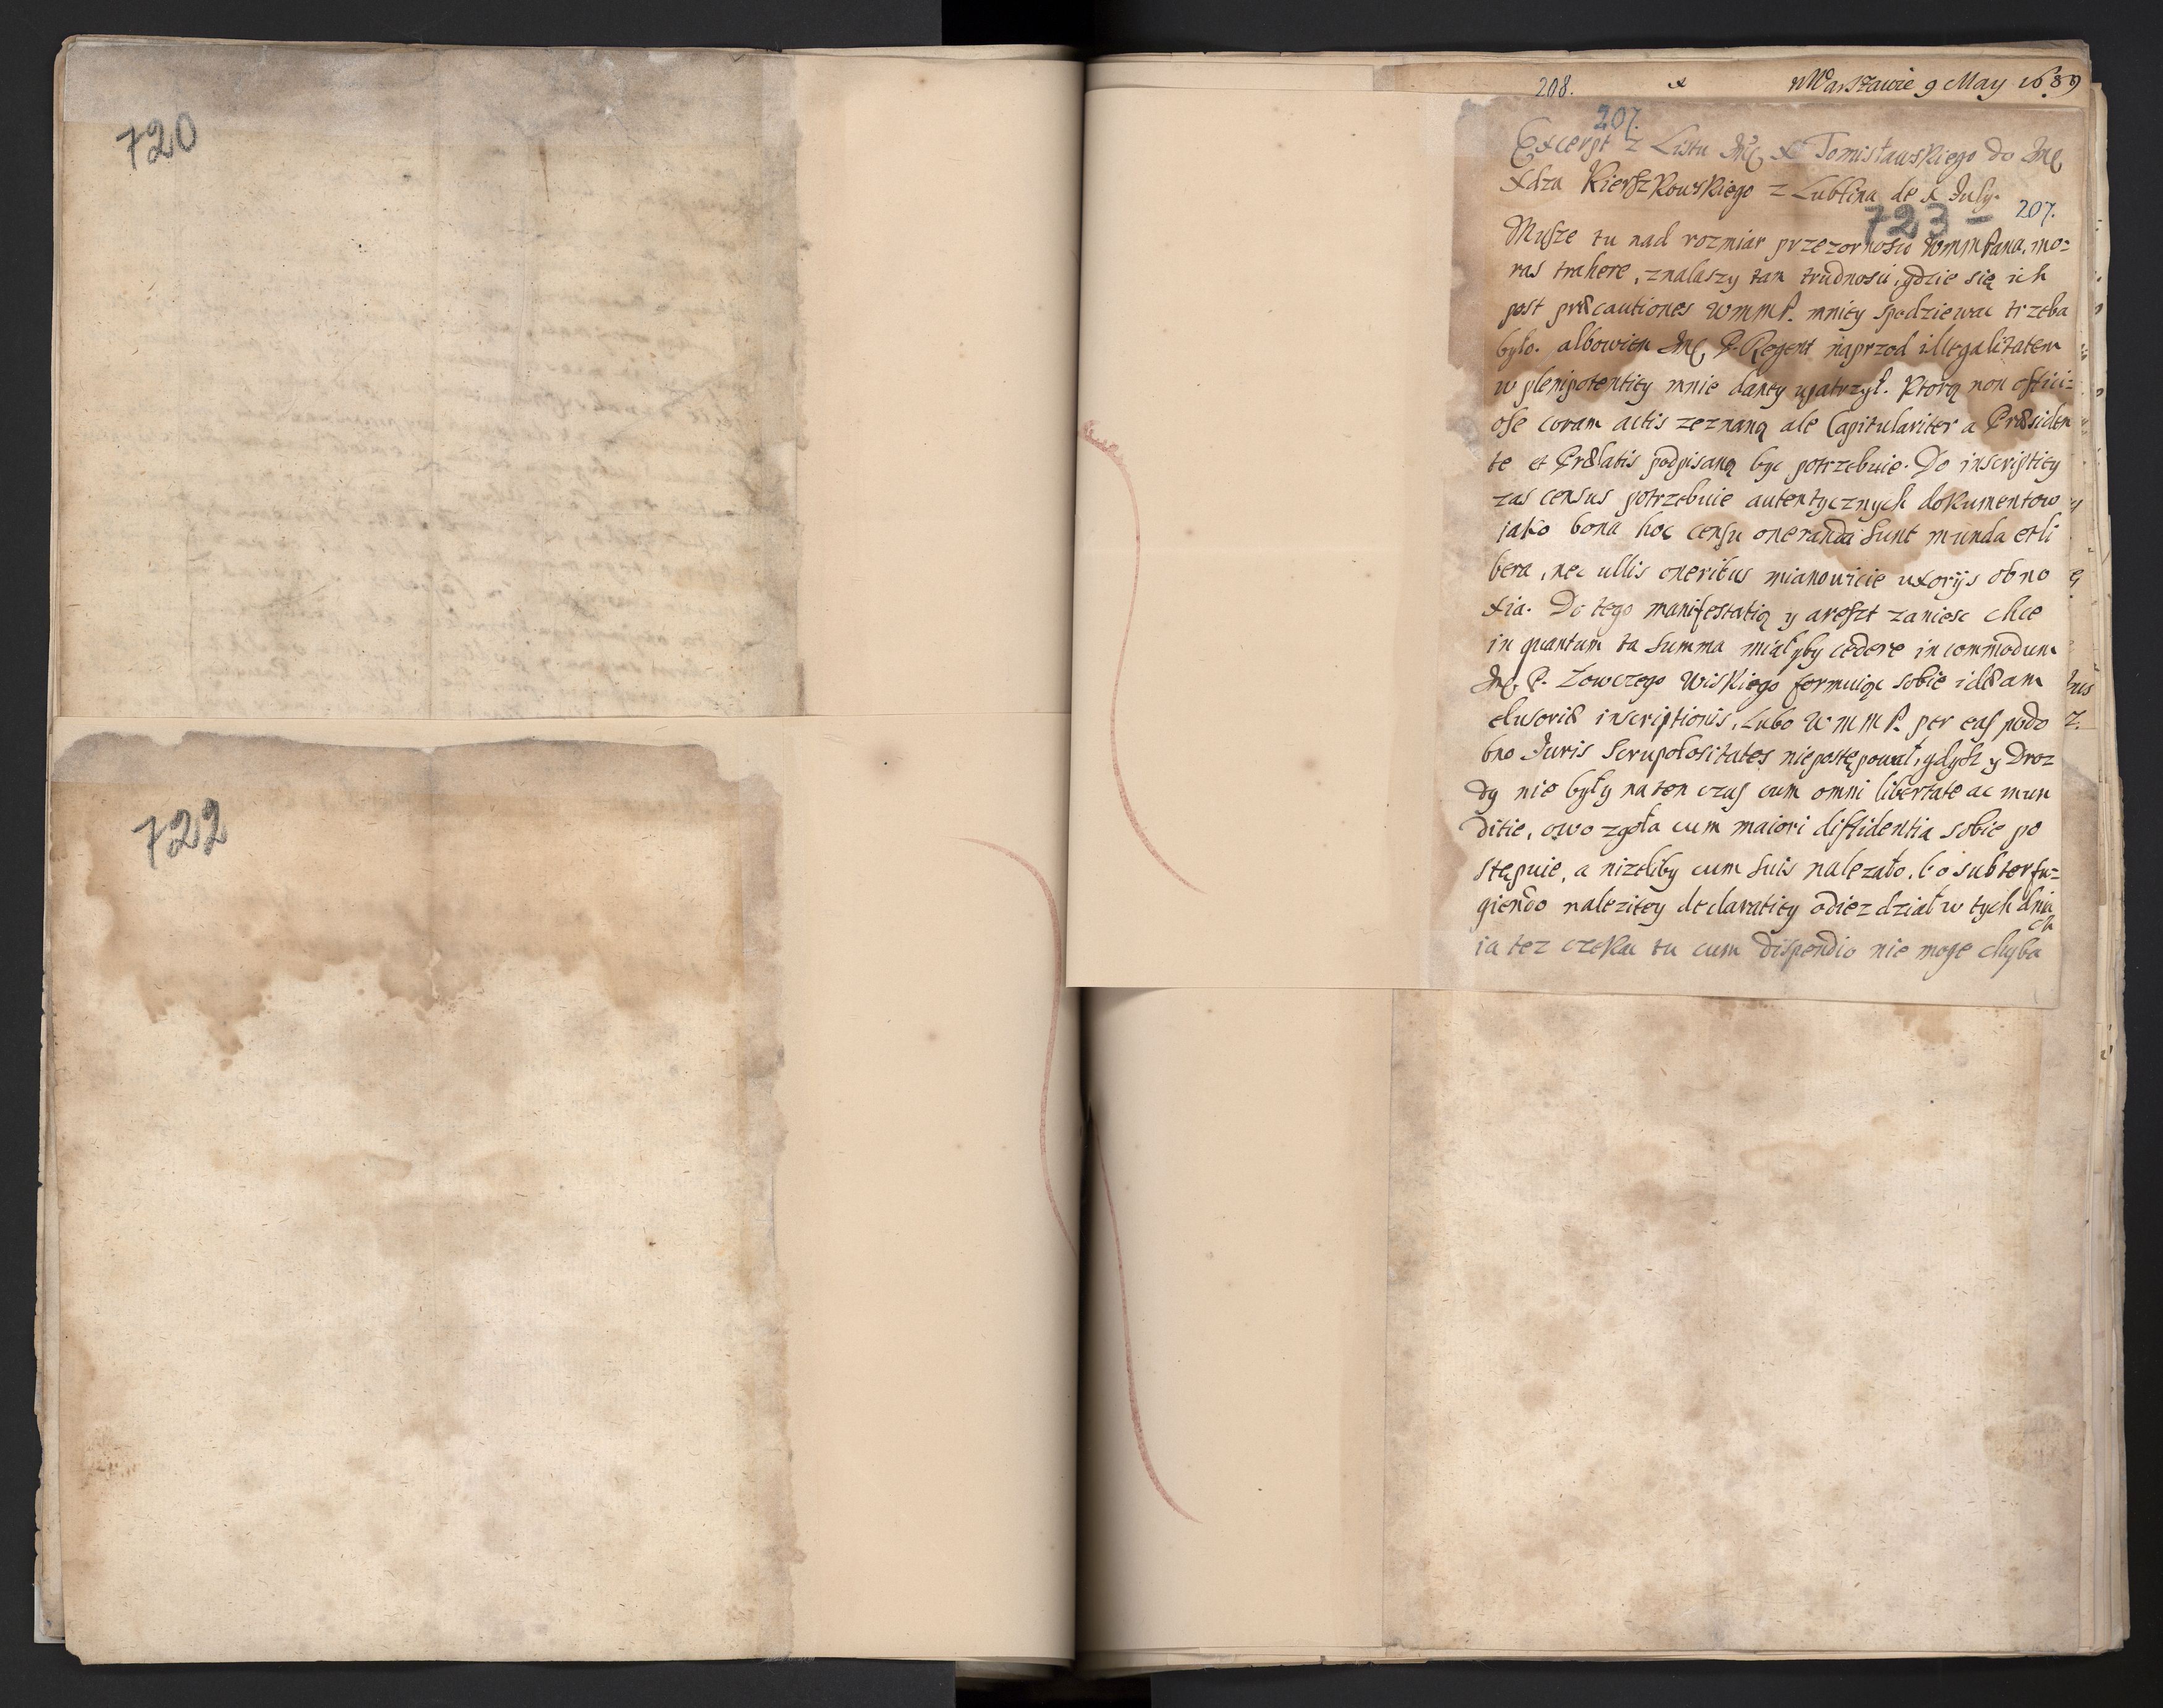 720
722
208. x w Warszawie 9 May 1689
207.
Excerpt z Listu Jmć X Tomisławskiego do Jmć
Xdza Kierszkowskiego z Lublina de X July.
723 - 207.
Musze tu nad rozmiar przezornosci WMMPana, mo=
ras trahere, znalaszy tam trudnosci, gdzie się ich
post præcautiones WMMP. mniey spodziewac trzeba
było. albowiem Jmć P. Regent naprzod illegalitatem
w plenipotentiey mnie daney upatrzył. Ktorą non offici=
ose coram actis zeznaną ale Capitulariter a Præsiden
te et Prælatis podpisaną byc potrzebuie. Do inscriptiey
zas census potrzebuie autentycznych dokumentow
jako bona hoc censu oneranda sunt munda et li
bera, nec ullis oneribus mianowicie uxorijs obno
xia. Do tego manifestatią y areszt zaniesc chce
in quantum ta summa miałyby cedere in commodum
Jmć P. Łowczego Wiskiego formuiąc sobie idæam
elusoriæ inscriptionis, Lubo WMMP. per eas podo
bno Juris Scrupolositates niepostępował, gdysz y Droz
dy nie były na ten czas cum omni libertate ac mun
ditie, owo zgoła cum maiori diffidentia sobie po
stępuie, a nizeliby cum suis nalezało. bo subterfu=
giendo nalezitey declaratiey odiezdział w tych dnia
ch
ia tez czekac tu cum dispendio nie moge chyba